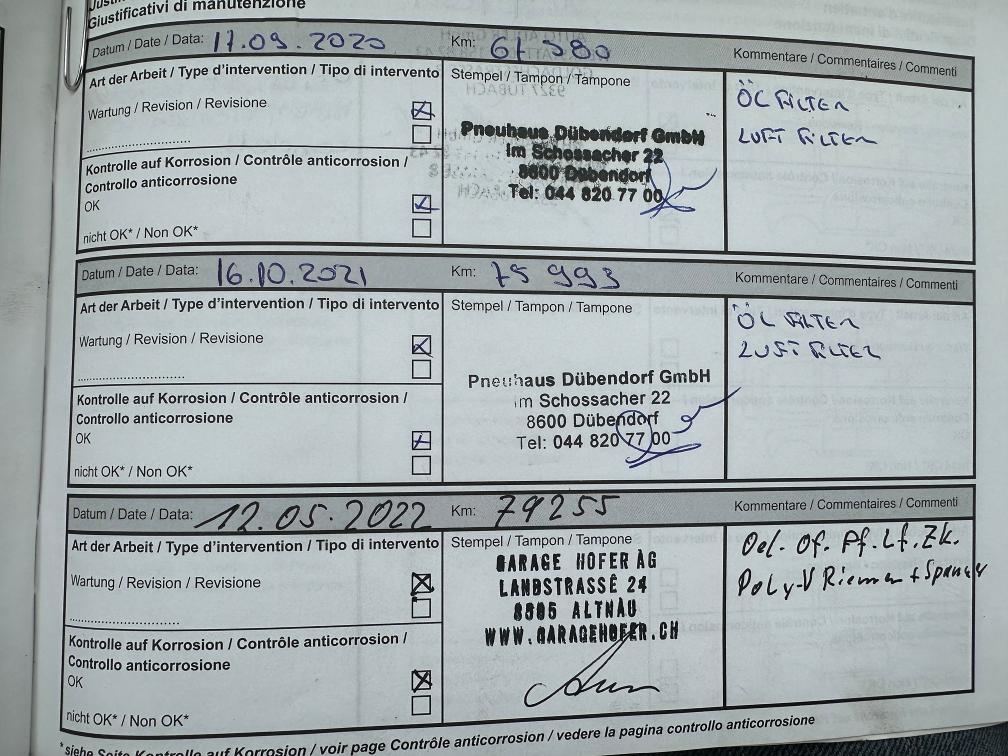 Giustificativi di manutenzione
Datum / Date / Data: 17.09.2020 Km: 61 380 Kommentare / Commentaires / Commenti
Art der Arbeit / Type d'intervention / Tipo di intervento
Stempel / Tampon / Tampone
ÖL FILTER
LUFT FILTER
Wartung / Revision / Revisione
Pneuhaus Dübendorf GmbH
Im Schossacher 22
8600 Dübendorf
Tel: 044 820 77 00
Kontrolle auf Korrosion / Contrôle anticorrosion /
Controllo anticorrosione
OK
nicht OK* / Non OK*
Datum / Date / Data: 16.10.2021 Km: 75 993 Kommentare / Commentaires / Commenti
Art der Arbeit / Type d'intervention / Tipo di intervento
Stempel / Tampon / Tampone
ÖL FILTER
LUFT FILTER
Wartung / Revision / Revisione
Pneuhaus Dübendorf GmbH
Im Schossacher 22
8600 Dübendorf
Tel: 044 820 77 00
Kontrolle auf Korrosion / Contrôle anticorrosion /
Controllo anticorrosione
OK
nicht OK* / Non OK*
Datum / Date / Data: 12.05.2022 Km: 79255 Kommentare / Commentaires / Commenti
Art der Arbeit / Type d'intervention / Tipo di intervento
Stempel / Tampon / Tampone
Oel. Of. Pf. Lf. Zk.
Poly-V Riemen + Spanner
Wartung / Revision / Revisione
GARAGE HOFER AG
LANDSTRASSE 24
8595 ALTNAU
WWW.GARAGEHOFER.CH
Kontrolle auf Korrosion / Contrôle anticorrosion /
Controllo anticorrosione
OK
nicht OK* / Non OK*
*siehe Seite Kontrolle auf Korrosion / voir page Contrôle anticorrosion / vedere la pagina controllo anticorrosione